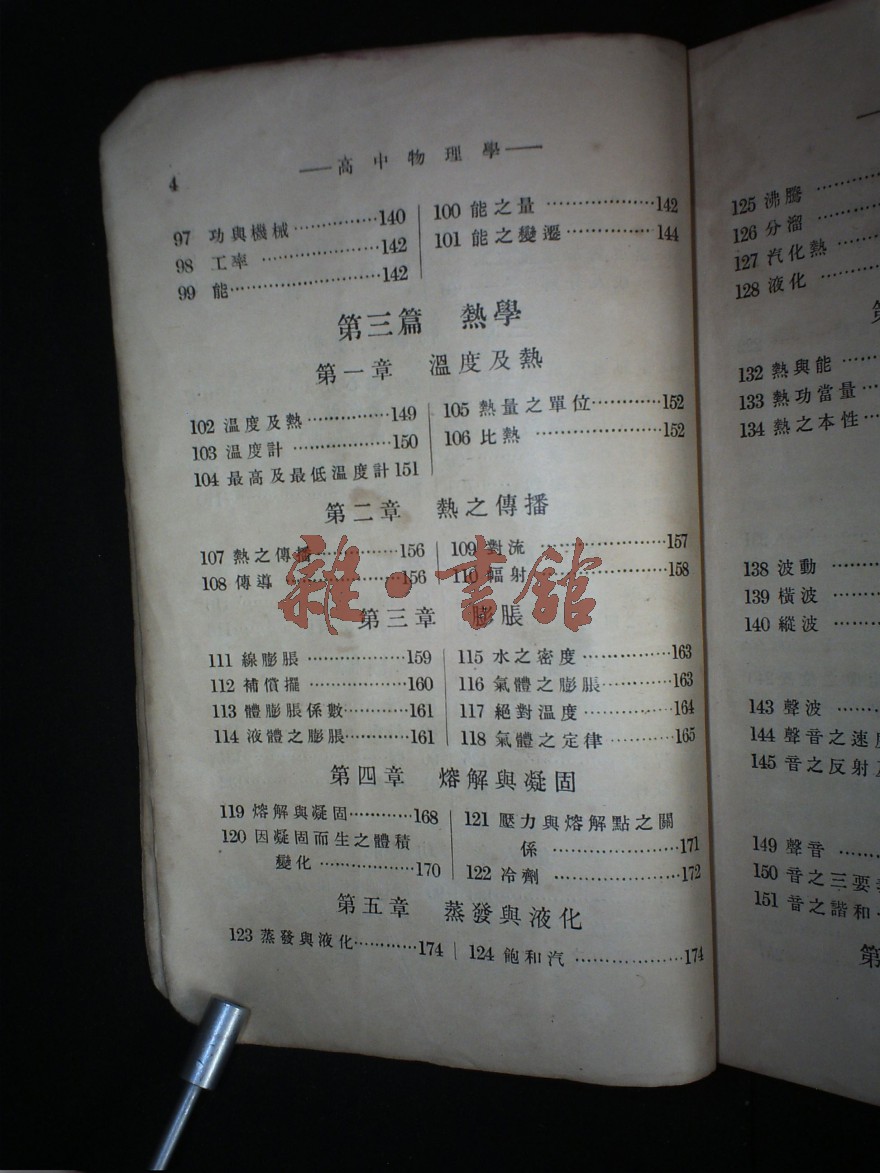 4
高中物理學
97 功與機械……………140
98 工率 …………………142
99 能………………………142
100 能之量 ………………142
101 能之變遷……………144
第三篇 熱學
第一章 溫度及熱
102 溫度及熱……………149
103 溫度計 ………………150
104 最高及最低溫度計151
105 熱量之單位…………152
106 比熱 …………………152
第二章 熱之傳播
107 熱之傳播……………156
108 傳導 …………………156
109 對流 …………………157
110 輻射 …………………158
雜·書館
第三章 膨脹
111 線膨脹 ………………159
112 補償擺 ………………160
113 體膨脹係數…………161
114 液體之膨脹…………161
115 水之密度 ……………163
116 氣體之膨脹…………163
117 絕對溫度 ……………164
118 氣體之定律 …………165
第四章 熔解與凝固
119 熔解與凝固…………168
120 因凝固而生之體積
變化 ………………170
121 壓力與熔解點之關
係 …………………171
122 冷劑 …………………172
第五章 蒸發與液化
123 蒸發與液化…………174
124 飽和汽 ………………174
125 沸騰 ……
126 分溜 ……
127 汽化熱 ……
128 液化 ……
第
132 熱與能 ……
133 熱功當量 ……
134 熱之本性……
138 波動 ……
139 橫波 ……
140 縱波 ……
143 聲波 ……
144 聲音之速度
145 音之反射
149 聲音 ……
150 音之三要素
151 音之諧和
第